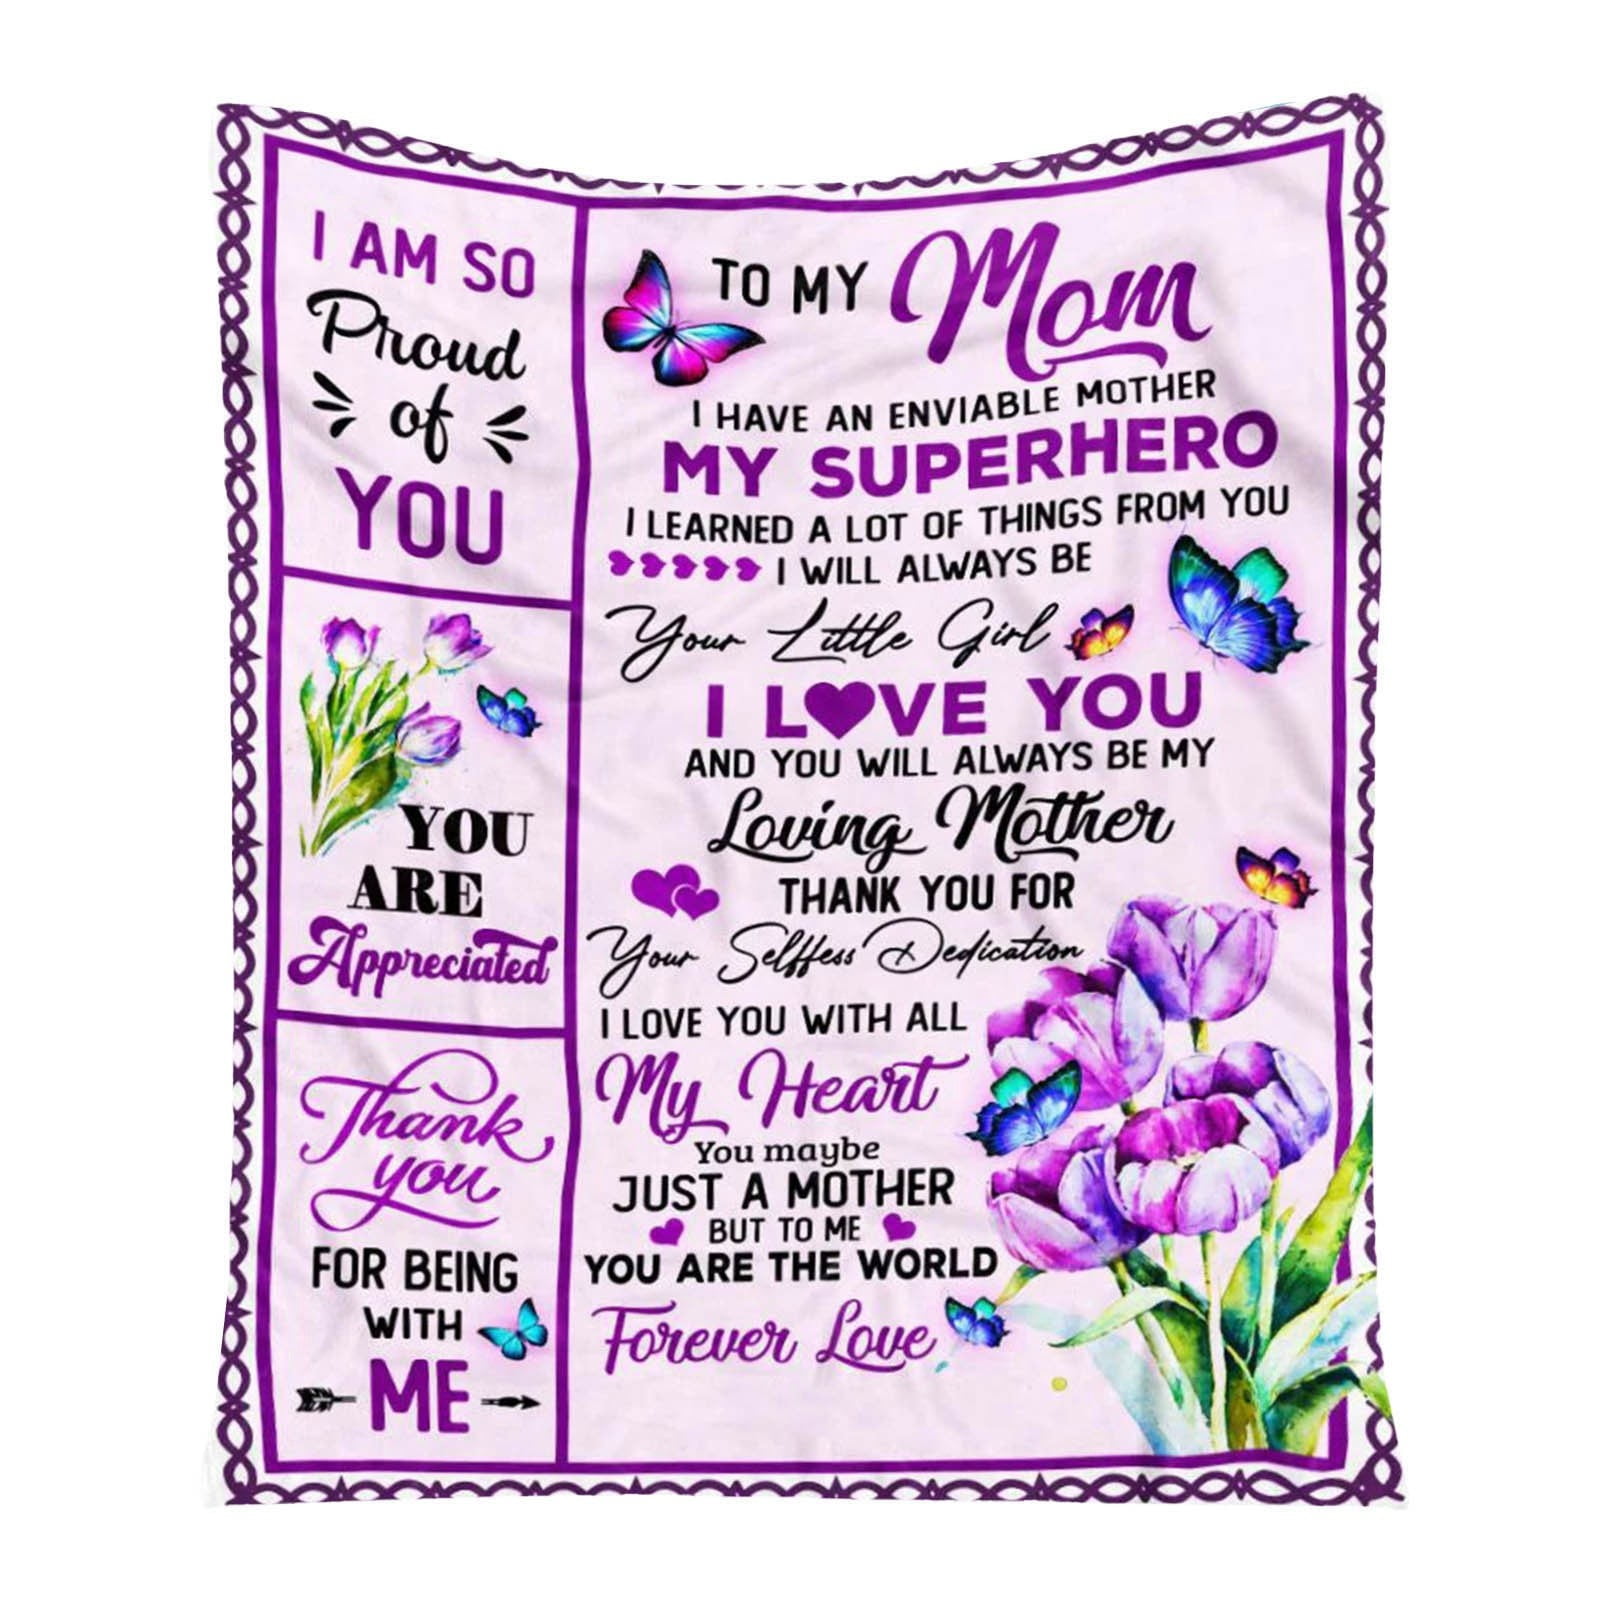 I AM SO
Proud
of
YOU
YOU
ARE
Appreciated
Thank
you
FOR BEING
WITH
ME
TO MY Mom
I HAVE AN ENVIABLE MOTHER
MY SUPERHERO
I LEARNED A LOT OF THINGS FROM YOU
I WILL ALWAYS BE
Your Little Girl
I L♥VE YOU
AND YOU WILL ALWAYS BE MY
Loving Mother
THANK YOU FOR
Your Selfless Dedication
I LOVE YOU WITH ALL
My Heart
You maybe
JUST A MOTHER
BUT TO ME
YOU ARE THE WORLD
Forever Love